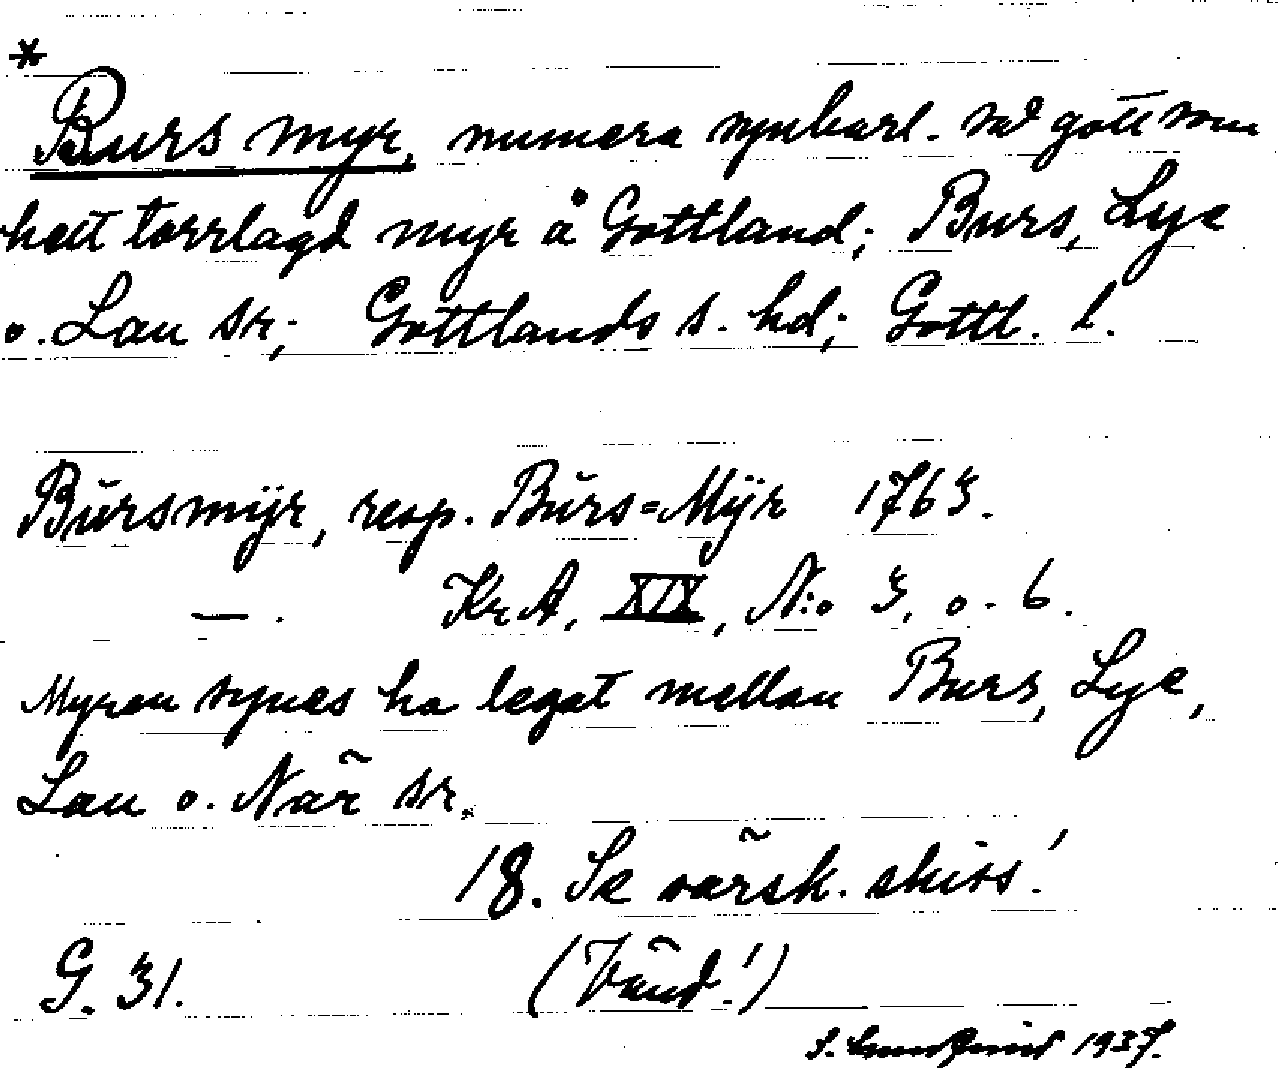 *
Burs myr, numera synbarl. så gott som
helt torrlagd myr å Gottland; Burs, Lye
o. Lau sr; Gottlands s. hd; Gottl. l.
Bŭrsmÿr, resp. Bŭrs=Mÿr 1763.
— . KrA, XIX, N:o 3, o. 6.
Myren synes ha legat mellan Burs, Lye,
Lau o. När sr.
18. Se särsk. skiss!
G. 31. (Vänd!)
1937.